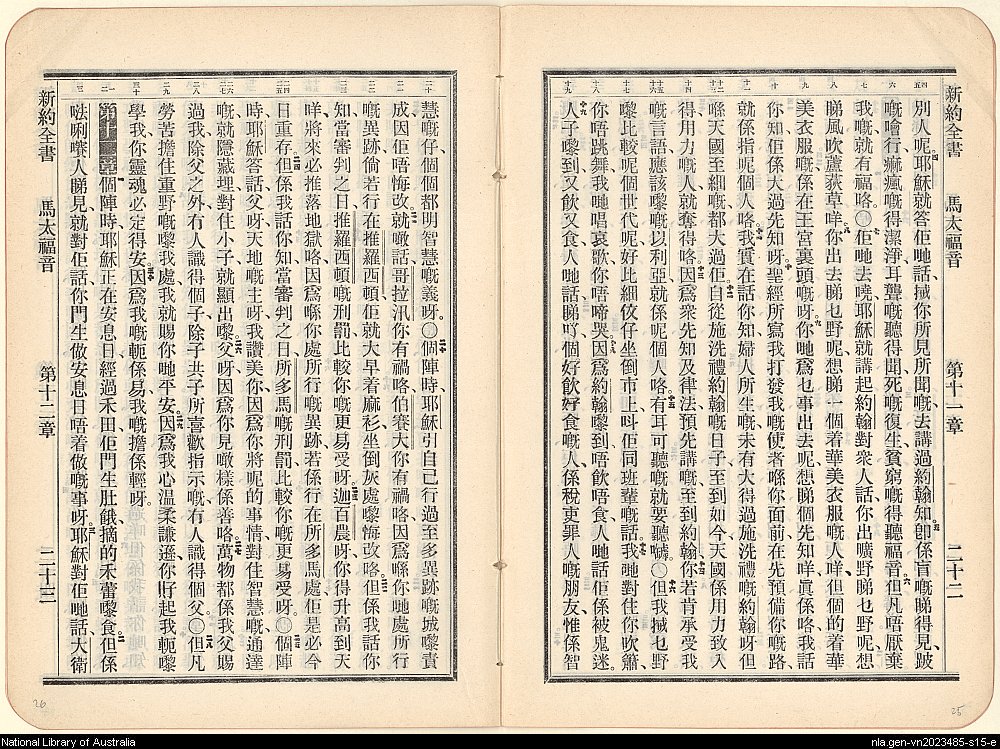 新約全書 馬太福音 第十一章 二十二
別人呢耶穌就答佢哋話搣你所見所聞嘅去講過約翰知卽係盲嘅睇得見跛
嘅噲行痲瘋嘅得潔淨耳聾嘅聽得聞死嘅復生貧窮嘅得聽福音但凡唔厭棄
我嘅就有福咯〇佢哋去嘵耶穌就講起約翰對衆人話你出曠野睇乜野呢想
睇風吹蘆荻草咩你出去睇乜野呢想睇一個着華美衣服嘅人咩但個的着華
美衣服嘅係在王宮裏頭嘅呀你哋爲乜事出去呢想睇個先知咩眞係咯我話
你知佢係大過先知呀聖經所寫我打發我嘅使者喺你面前在先預備你嘅路
就係指呢個人咯我實在話你知婦人所生嘅未有大得過施洗禮嘅約翰呀但
喺天國至細嘅都大過佢自從施洗禮約翰嘅日子至到如今天國係用力致入
得用力嘅人就奪得咯因爲衆先知及律法預先講嘅至到約翰你若肯承受我
嘅言語應該嚟嘅以利亞就係呢個人咯有耳可聽嘅就要聽嘑〇但我搣乜野
嚟比較呢個世代呢好比細伩仔坐倒市上呌佢同班輩嘅話我哋對住你吹簫
你唔跳舞我哋唱哀歌你唔啼哭因爲約翰嚟到唔飲唔食人哋話佢係被鬼迷
人子嚟到又飲又食人哋話睇吓個好飲好食嘅人係稅吏罪人嘅朋友惟係智
新約全書 馬太福音 第十二章 二十三
慧嘅仔個個都明智慧嘅義呀〇個陣時耶穌引自己行過至多異跡嘅城嚟責
成因佢唔悔改就噉話哥拉汛你有禍咯伯賽大你有禍咯因爲喺你哋處所行
嘅異跡倘若行在推羅西頓佢就大早着麻衫坐倒灰處嚟悔改咯但係我話你
知當審判之日推羅西頓嘅刑罰比較你嘅更易受呀迦百農呀你得升高到天
咩將來必推落地獄咯因爲喺你處所行嘅異跡若係行在所多馬處佢是必今
日重存但係我話你知當審判之日所多馬嘅刑罰比較你嘅更易受呀〇個陣
時耶穌答話父呀天地嘅主呀我讚美你因爲你將呢的事情對住智慧嘅通達
嘅就隱藏埋對住小子就顯出嚟父呀因爲你見噉樣係善咯萬物都係我父賜
過我除父之外有人識得個子除子共子所喜歡指示嘅有人識得個父〇但凡
勞苦擔住重野嘅嚟我處我就賜你哋平安因爲我心温柔謙遜你好起我軛嚟
學我你靈魂必定得安因爲我嘅軛係易我嘅擔係輕呀
第十二章個陣時耶穌正在安息日經過禾田佢門生肚餓摘的禾蕾嚟食但係
㗐唎㘔人睇見就對佢話你門生做安息日唔着做嘅事呀耶穌對佢哋話大衛
25
26
National Library of Australia
nla.gen-vn2023485-s15-e